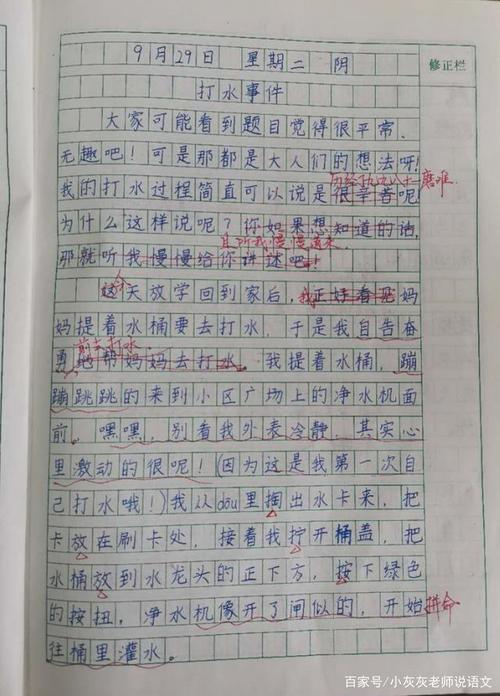 9月29日 星期二 阴
修正栏
打水事件
大家可能看到题目觉得很平常、
无趣吧!可是那都是大人们的想法呀!
历经九九八十一磨难
我的打水过程简直可以说是很辛苦呢!
为什么这样说呢?你如果想知道的话,
且听我慢慢道来
那就听我慢慢给你讲述吧!
今
这天放学回到家后,我正好看见妈
妈提着水桶要去打水,于是我自告奋
前去打水
勇地帮妈妈去打水。我提着水桶,蹦
蹦跳跳的来到小区广场上的净水机面
前。嘿嘿,别看我外表冷静,其实心
里激动的很呢!(因为这是我第一次自
己打水哦!)我从dōu里掏出水卡来,把
卡放在刷卡处,接着我拧开桶盖,把
水桶放到水龙头的正下方,按下绿色
的按扭,净水机像开了闸似的,开始拼命
往桶里灌水。
百家号/小灰灰老师说语文